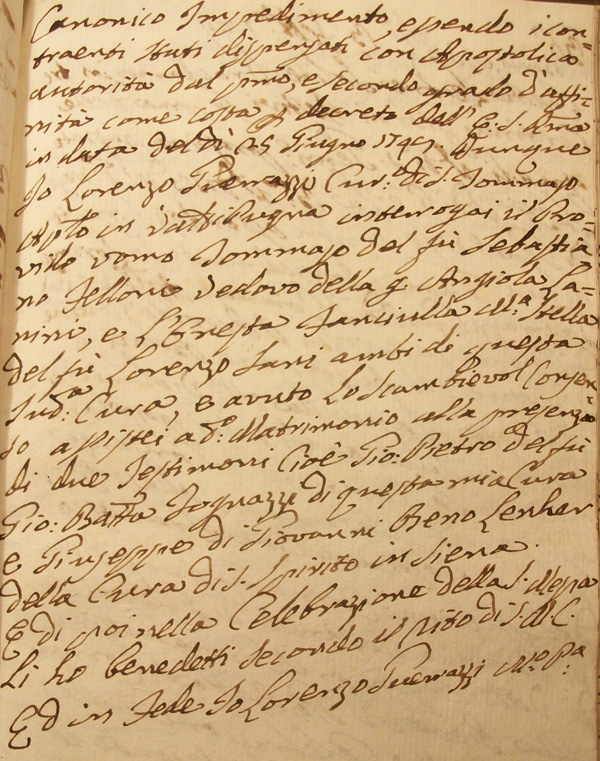 Canonico Impedimento, essendo i con-
traenti stati dispensati con Apostolica
autorità dal pmo, e secondo grado d'affi-
nità come costa p decreto dell' E. S. Rma
in data del dì 25 Giugno Dunque
Io Lorenzo Guerrazzi Cur.o di S. Tommaso
Apto in interrogai il Pro-
vido uomo Tommaso del fù Sebastia
no Felloni Vedovo della q. Angiola La-
nini, e L'Onesta Fanciulla M.a Stella
del fù Lorenzo Sani ambi di questa
Sud.a Cura, e avuto Lo Scambievol Consen-
so assistei a d.o Matrimonio alla presenza
di due Testimoni Cioè Gio: Pietro del fù
Gio: Batta Fognazzi di questa mia Cura
e Giuseppe di Giovanni Beno Lenher
della Cura di S. Spirito in Siena.
E di poi nella Celebrazione della S. Messa
Li ho benedetti Secondo il Rito di S. M. C.
Ed in Fede Io Lorenzo Guerrazzi M.o P.a